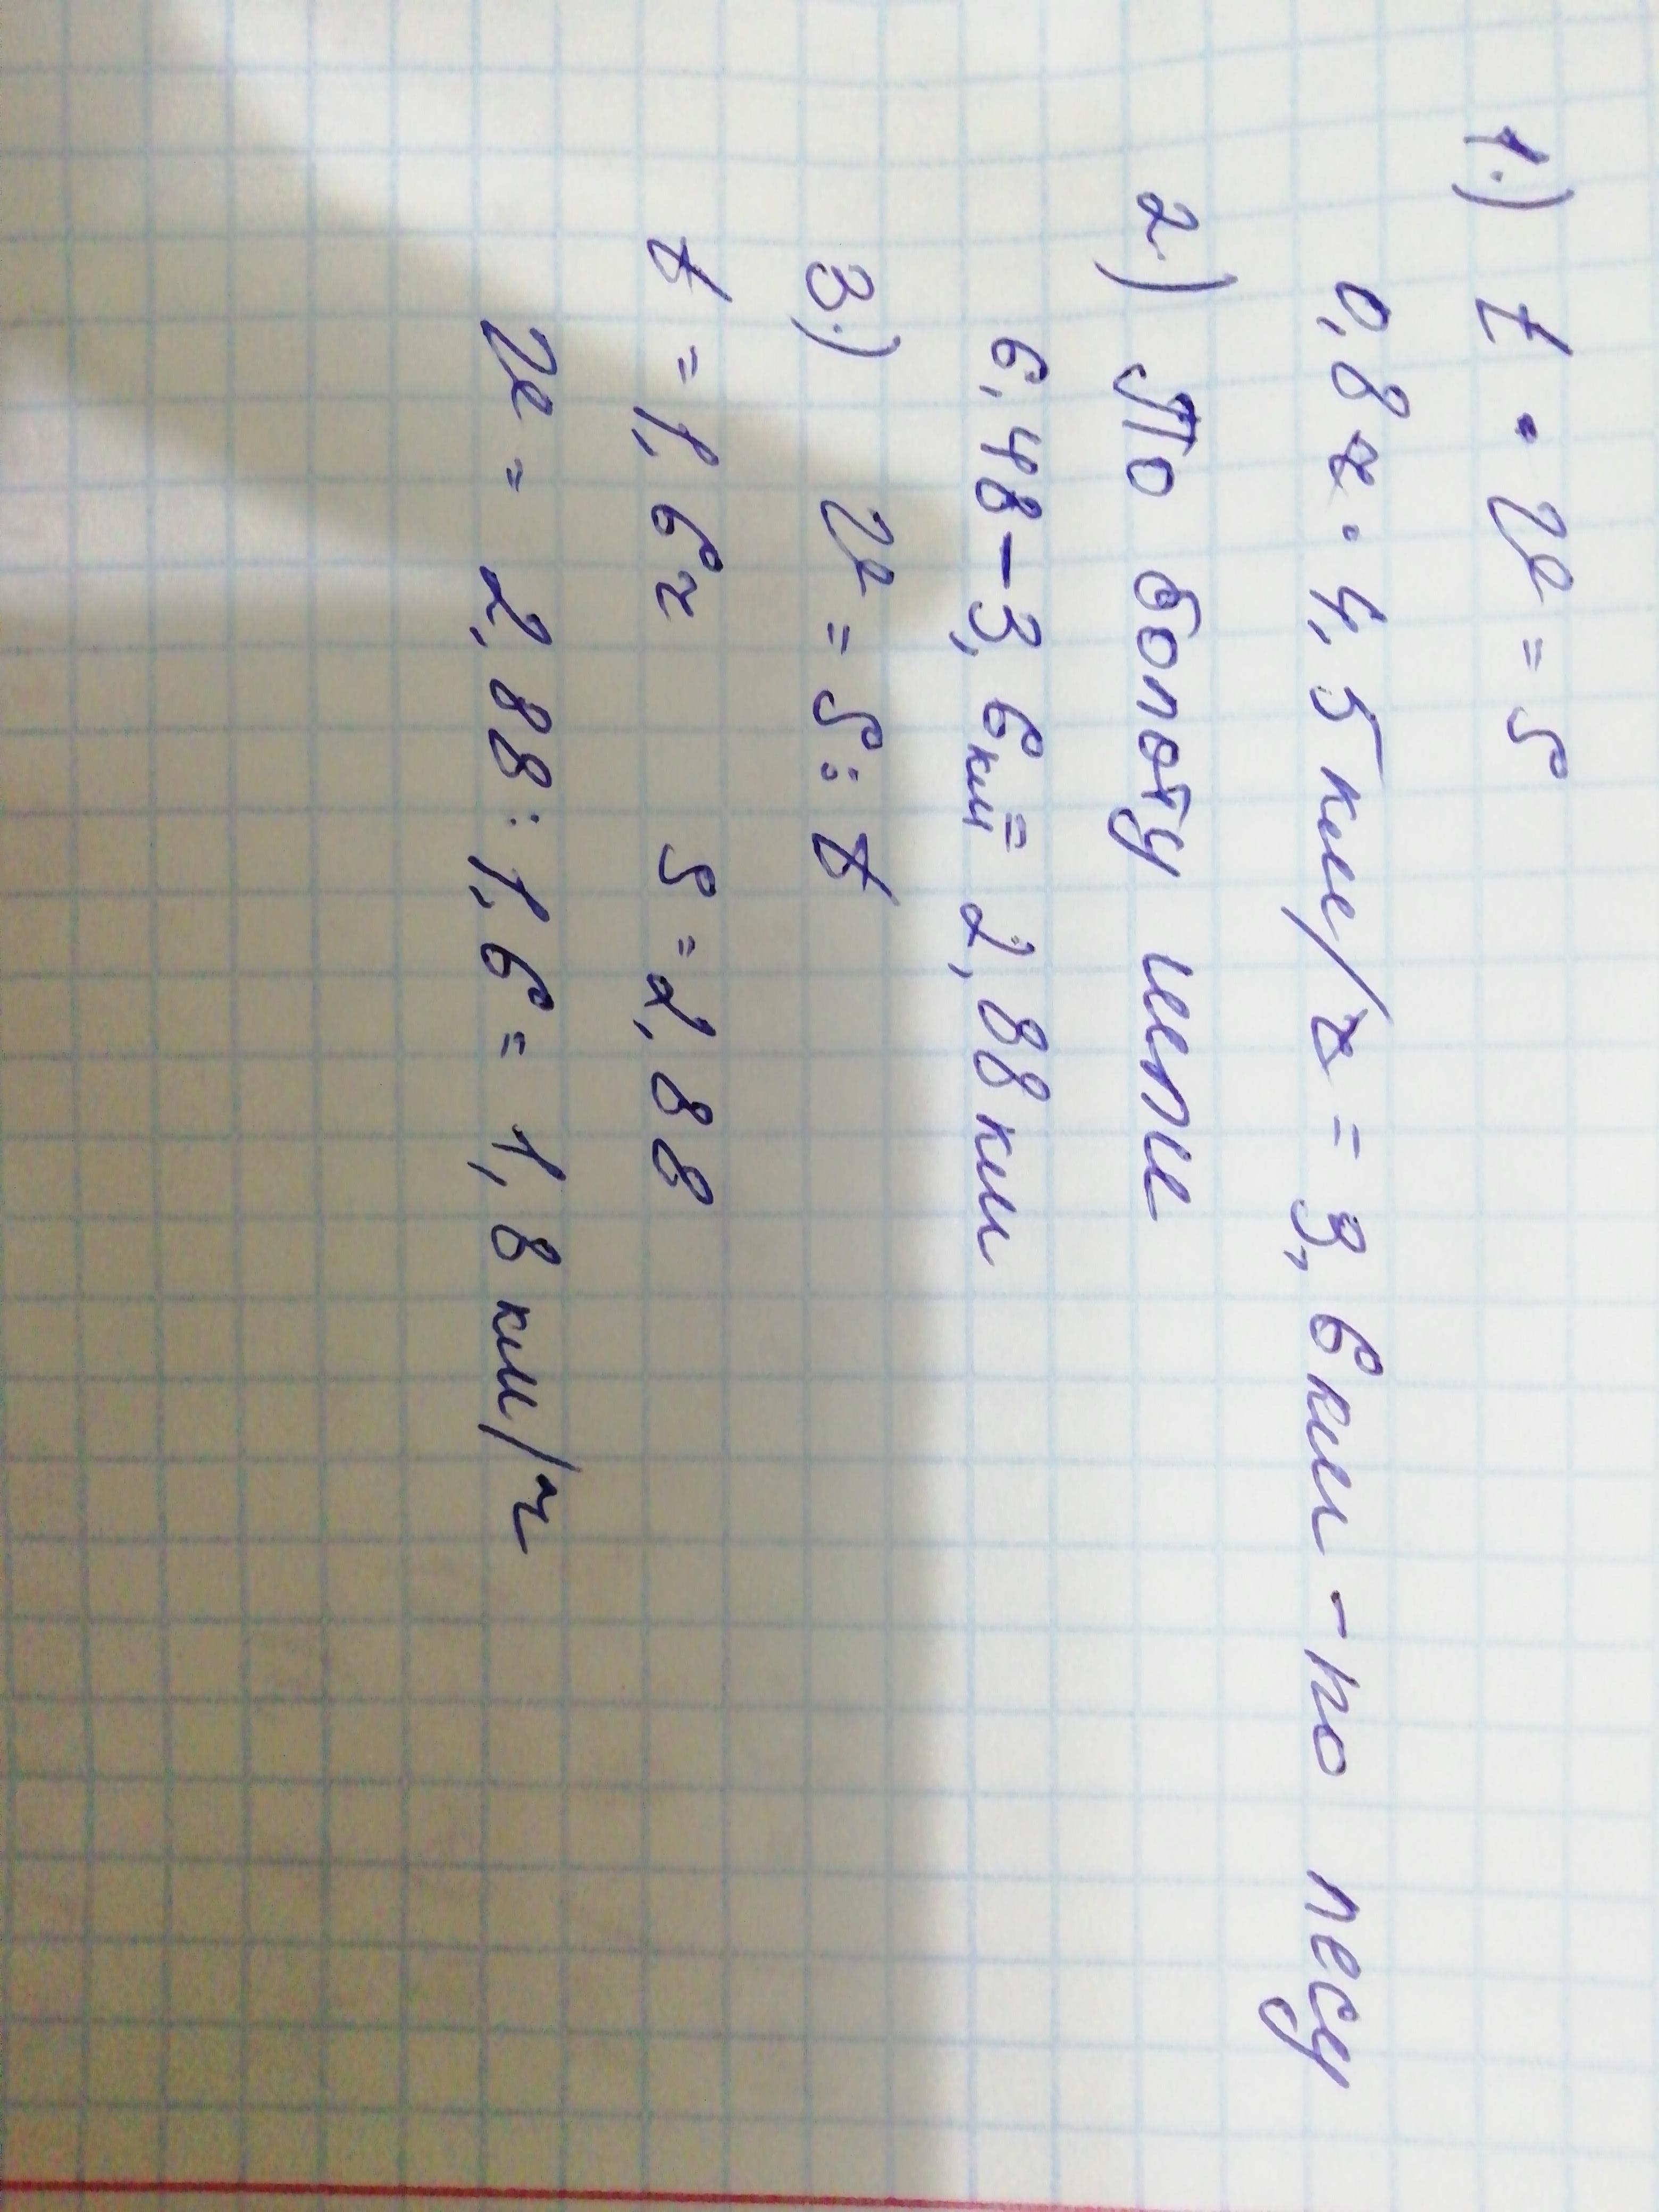 1.) t · V = S
0,8 ч · 4,5 км/ч = 3,6 км – по лесу
2.) По болоту шли
6,48 – 3,6 км = 2,88 км
3.) V = S : t
t = 1,6 ч S = 2,88
V = 2,88 : 1,6 = 1,8 км/ч